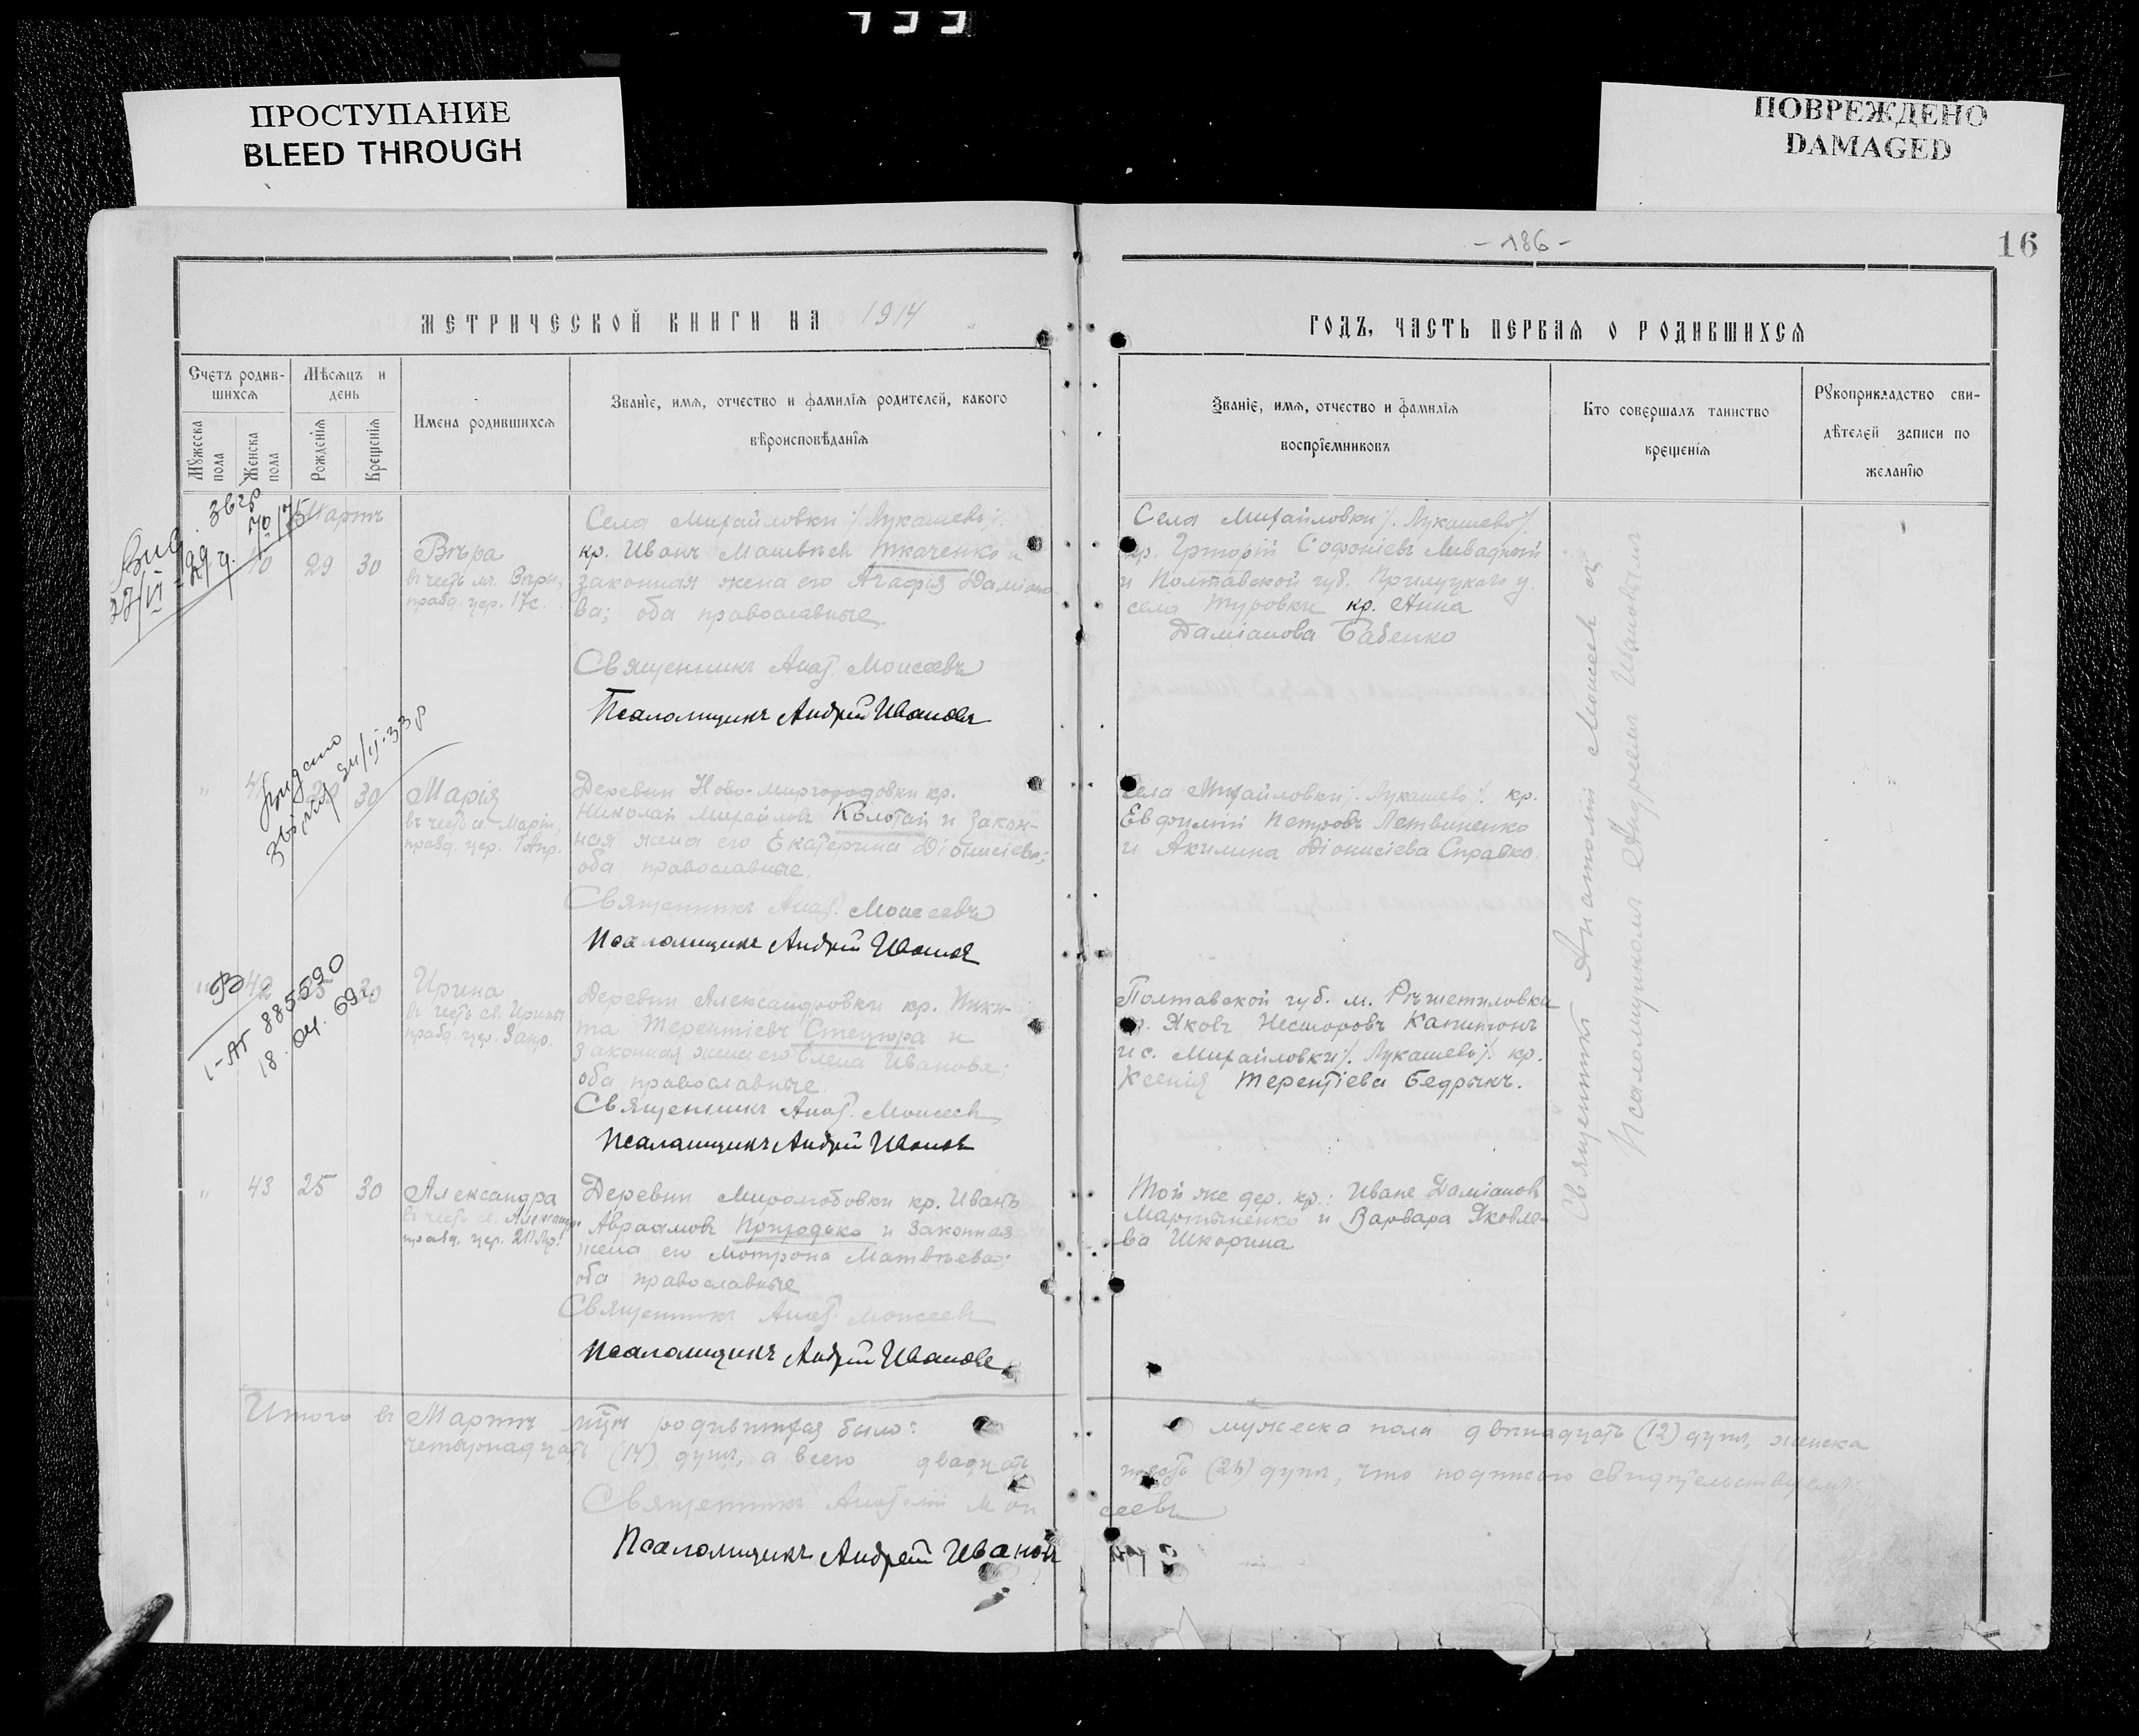 ПРОСТУПАНИЕ
BLEED THROUGH
ПОВРЕЖДЕНО
DAMAGED
- 186 -
16
МЕТРИЧЕСКОЙ КНИГИ НА 1914
ГОДЪ, ЧАСТЬ ПЕРВАЯ О РОДИВШИХСЯ
Счетъ родив-
шихся
Мѣсяцъ и
день
Мужеска
пола
Женска
пола
Рожденія
Крещенія
Имена родившихся
Званіе, имя, отчество и фамилія родителей, какого
вѣроисповѣданія
Званіе, имя, отчество и фамилія
воспріемниковъ
Кто совершалъ таинство
крещенія
Рукоприкладство сви-
дѣтелей записи по
желанію
Мартъ
29 30
Вѣра
въ честь мч. Вѣры,
празд. цер. 17 с.
Села Михайловки /. Лукашево /.
кр. Иванъ Матвѣевъ Ткаченко и
законная жена его Агафія Даміано-
ва; оба православные.
Священникъ Анат. Моисеевъ
Псаломщикъ Андрей Ивановъ
Села Михайловки /. Лукашево /.
кр. Григорій Софоніевъ Ливадный
и Полтавской губ. Прилуцкаго у.
села Туровки кр. Анна
Даміанова Бабенко
" 30
Марія
въ честь св. Маріи,
празд. цер. 1 Апр.
Деревни Ново-миргородовки кр.
Николай Михайловъ Колотай и закон-
ная жена его Екатерина Діонисіева;
оба православные.
Священникъ Анат. Моисеевъ
Псаломщикъ Андрей Ивановъ
Села Михайловки /. Лукашево /. кр.
Евфимій Петровъ Литвиненко
и Акилина Діонисіева Справко.
" 42 30
Ирина
въ честь св. Ирины
празд. цер.
885590
Деревни Александровки кр. Ники-
та Терентіевъ Стецюра и
законная жена его Елена Иванова;
оба православные.
Священникъ Анат. Моисеевъ
Псаломщикъ Андрей Ивановъ
Полтавской губ. м. Рѣшетиловки
кр. Яковъ Несторовъ Капитонъ
и с. Михайловки /. Лукашево /. кр.
Ксенія Терентіева Бедрыкъ.
" 43 25 30
Александра
Деревни Миролюбовки кр. Иванъ
Авраамовъ Попродько и законная
жена его Мотрона Матвѣева;
оба православные
Священникъ Анат. Моисеевъ
Псаломщикъ Андрей Ивановъ
Той же дер. кр.: Иванъ Даміановъ
Мартыненко и Варвара Яковле-
ва Шкорина
Священникъ Анатолій Моисеевъ съ
Псаломщикомъ Андреемъ Ивановымъ
Итого въ Мартѣ м-цѣ родившихся было: мужеска пола двѣнадцать (12) душъ, женска
четырнадцать (14) душъ, а всего двадцать шесть (26) душъ, что подписью свидѣтельствуемъ:
Священникъ Анатолій Моисеевъ
Псаломщикъ Андрей Ивановъ